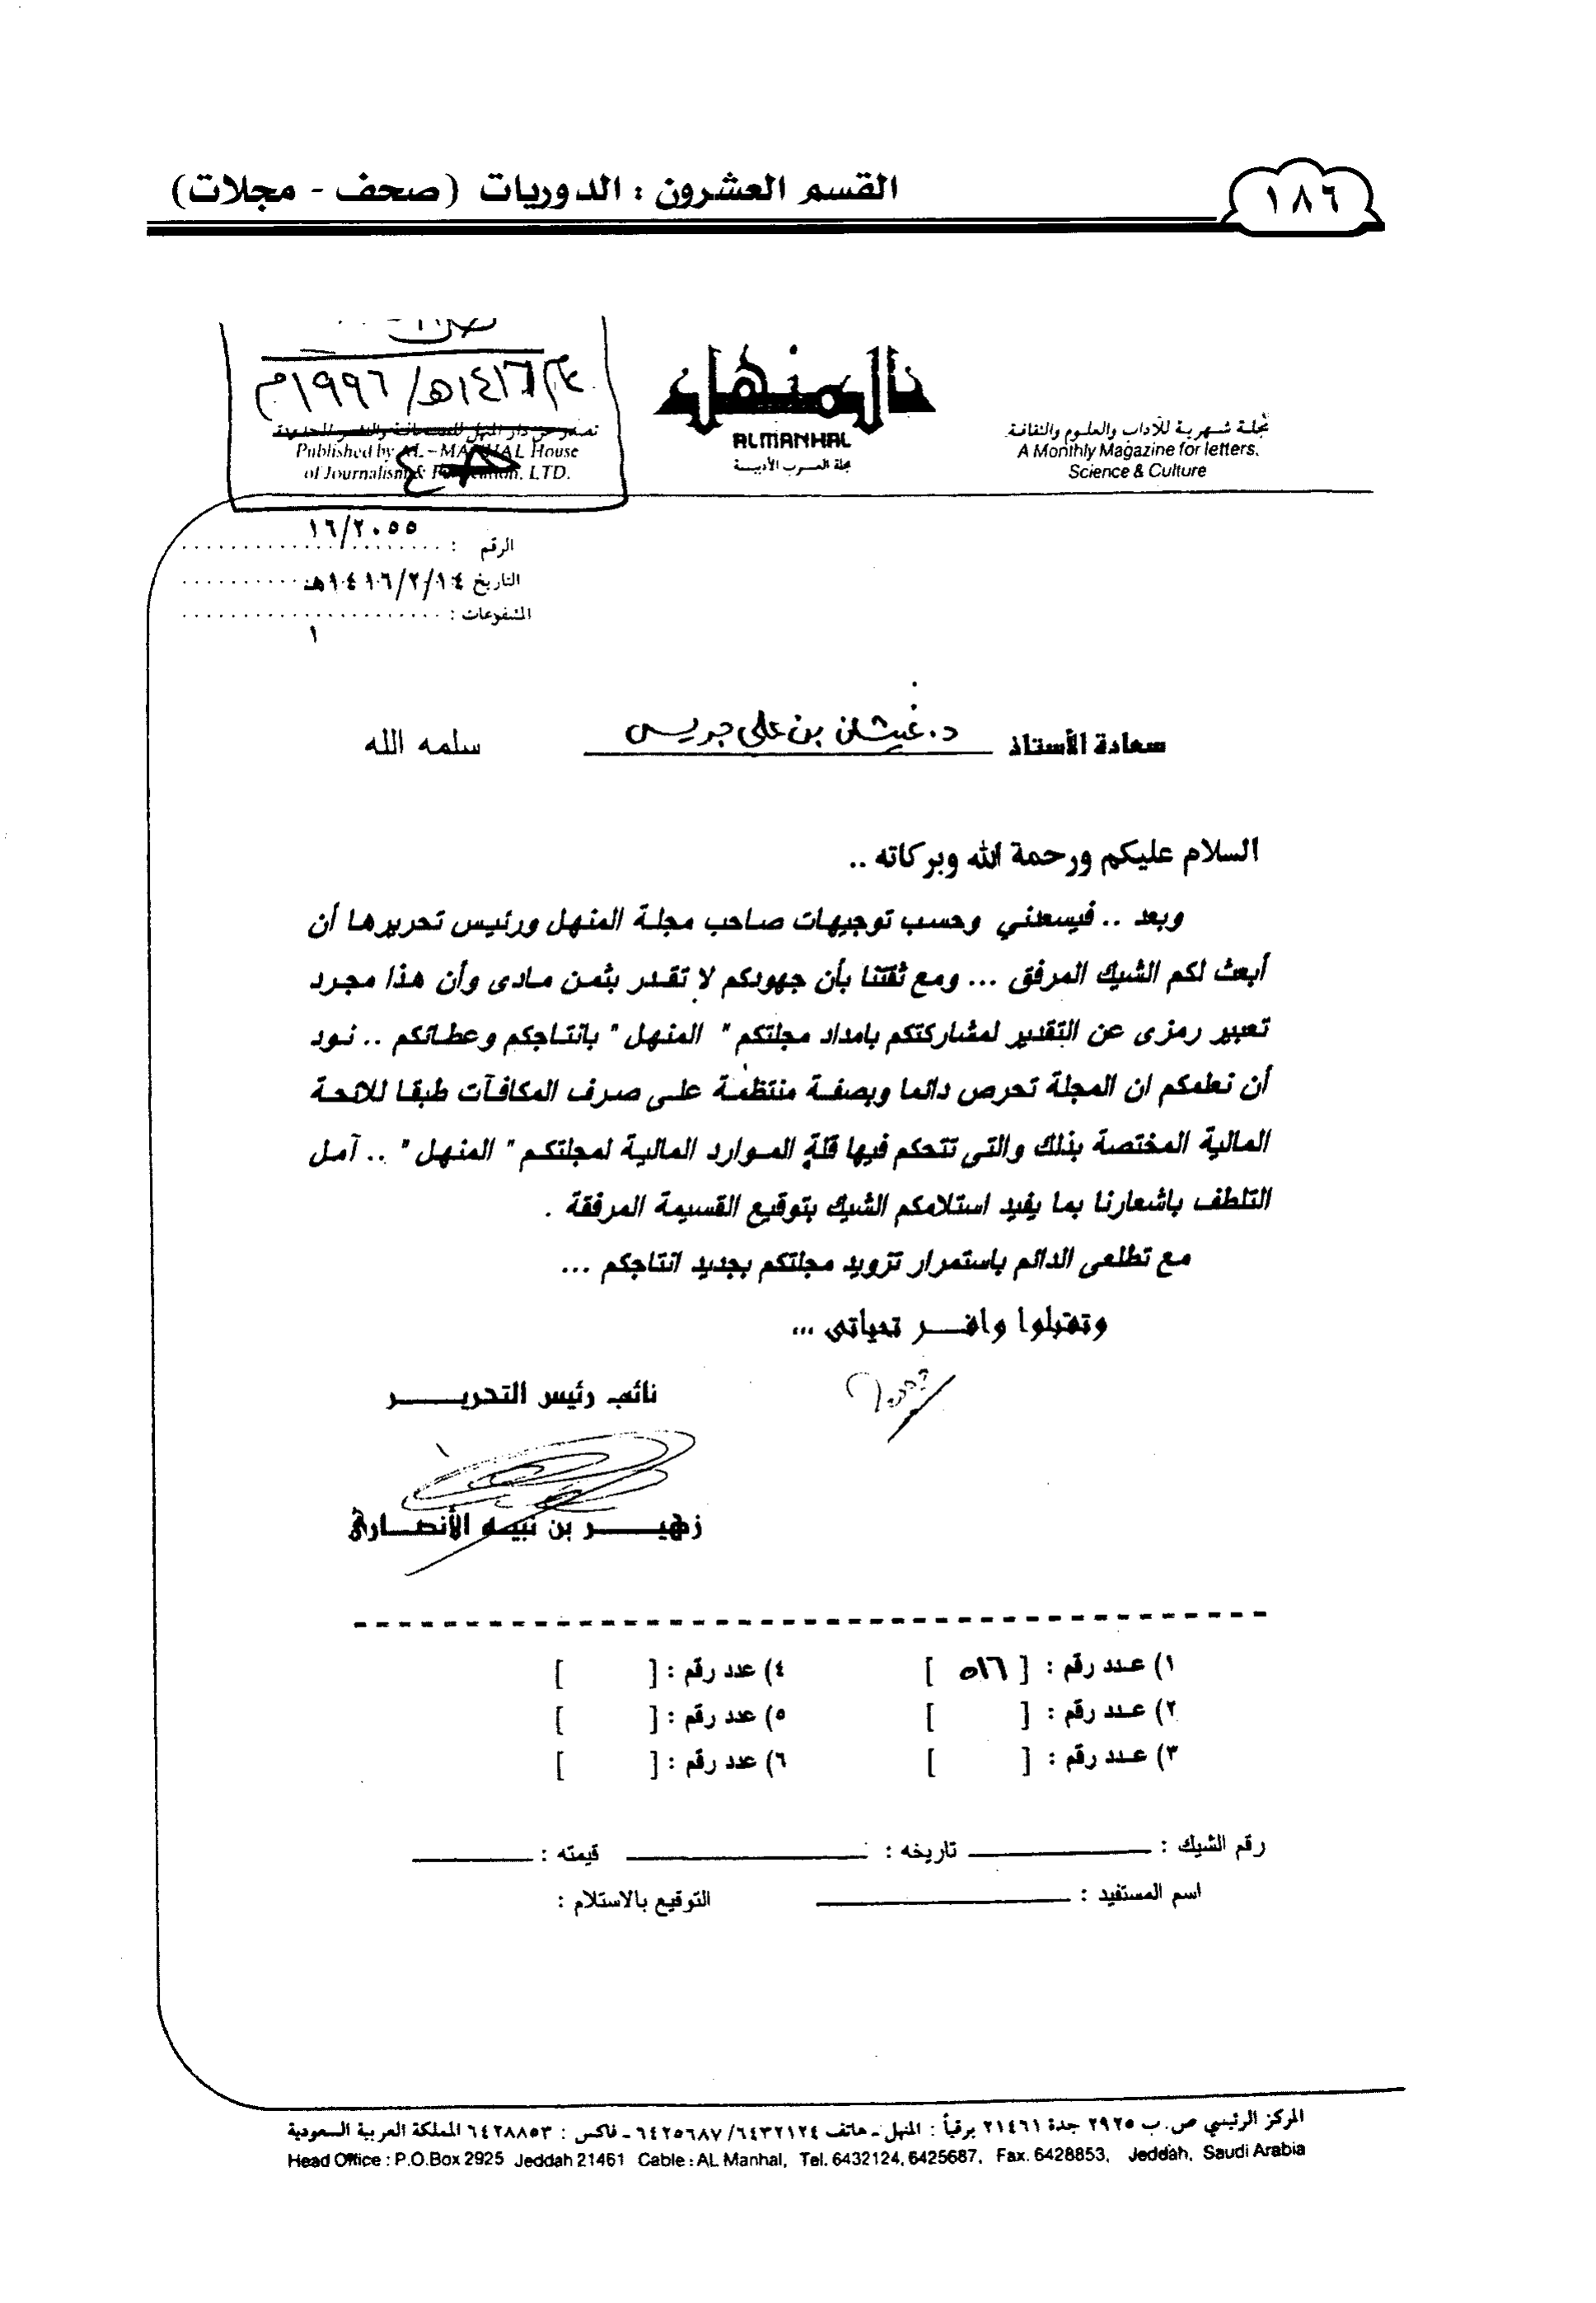 ١٨٦
القسم العشرون : الدوريات (صحف - مجلات)
١٤١٦هـ/ ١٩٩٦م
المنهل
ALMANHAL
مجلة العرب الأدبية
مجلة شهرية للآداب والعلوم والثقافة
A Monthly Magazine for letters,
Science & Culture
تصدر عن دار المنهل للصحافة والنشر المحدودة
Published by AL-MANHAL House
of Journalism & LTD.
الرقم : ١٦/٢٠٥٥
التاريخ ١٤١٦/٢/١٤هـ
المشفوعات :
١
سعادة الأستاذ د. غيثان بن علي جريس سلمه الله
السلام عليكم ورحمة الله وبركاته ..
وبعد .. فيسعني وحسب توجيهات صاحب مجلة المنهل ورئيس تحريرها أن
أبعث لكم الشيك المرفق ... ومع ثقتنا بأن جهودكم لا تقدر بثمن مادى وأن هذا مجرد
تعبير رمزى عن التقدير لمشاركتكم بامداد مجلتكم " المنهل " بانتاجكم وعطائكم .. نود
أن نعلمكم ان المجلة تحرص دائما وبصفة منتظمة على صرف المكافآت طبقا للائحة
المالية المختصة بذلك والتى تتحكم فيها قلة الموارد المالية لمجلتكم " المنهل " .. آمل
التلطف باشعارنا بما يفيد استلامكم الشيك بتوقيع القسيمة المرفقة .
مع تطلعى الدائم باستمرار تزويد مجلتكم بجديد انتاجكم ...
وتقبلوا وافـــر تحياتى ...
نائب رئيس التحريــــر
زهيـــــر بن نبيه الأنصارى
١) عدد رقم : [ ٥١٦ ] ٤) عدد رقم : [ ]
٢) عدد رقم : [ ] ٥) عدد رقم : [ ]
٣) عدد رقم : [ ] ٦) عدد رقم : [ ]
رقم الشيك : تاريخه : قيمته :
اسم المستفيد : التوقيع بالاستلام :
المركز الرئيسي ص.ب ٢٩٢٥ جدة ٢١٤٦١ برقياً : المنهل - هاتف ٦٤٣٢١٢٤/ ٦٤٢٥٦٨٧ - فاكس : ٦٤٢٨٨٥٣ المملكة العربية السعودية
Head Office : P.O.Box 2925 Jeddah 21461 Cable : AL Manhal, Tel. 6432124, 6425687, Fax. 6428853, Jeddah, Saudi Arabia